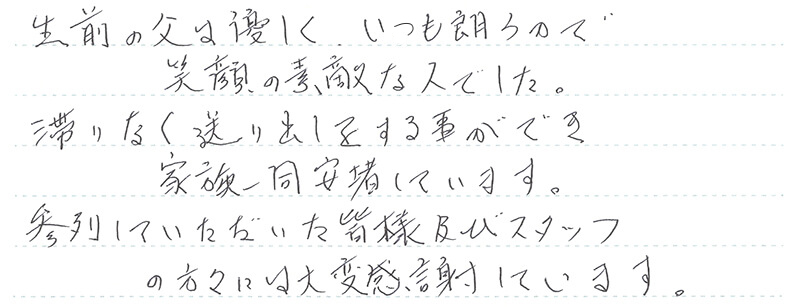 生前の父は優しく、いつも朗らかで
笑顔の素敵な人でした。
滞りなく送り出しをする事ができ
家族一同安堵しています。
参列していただいた皆様及びスタッフ
の方々には大変感謝しています。